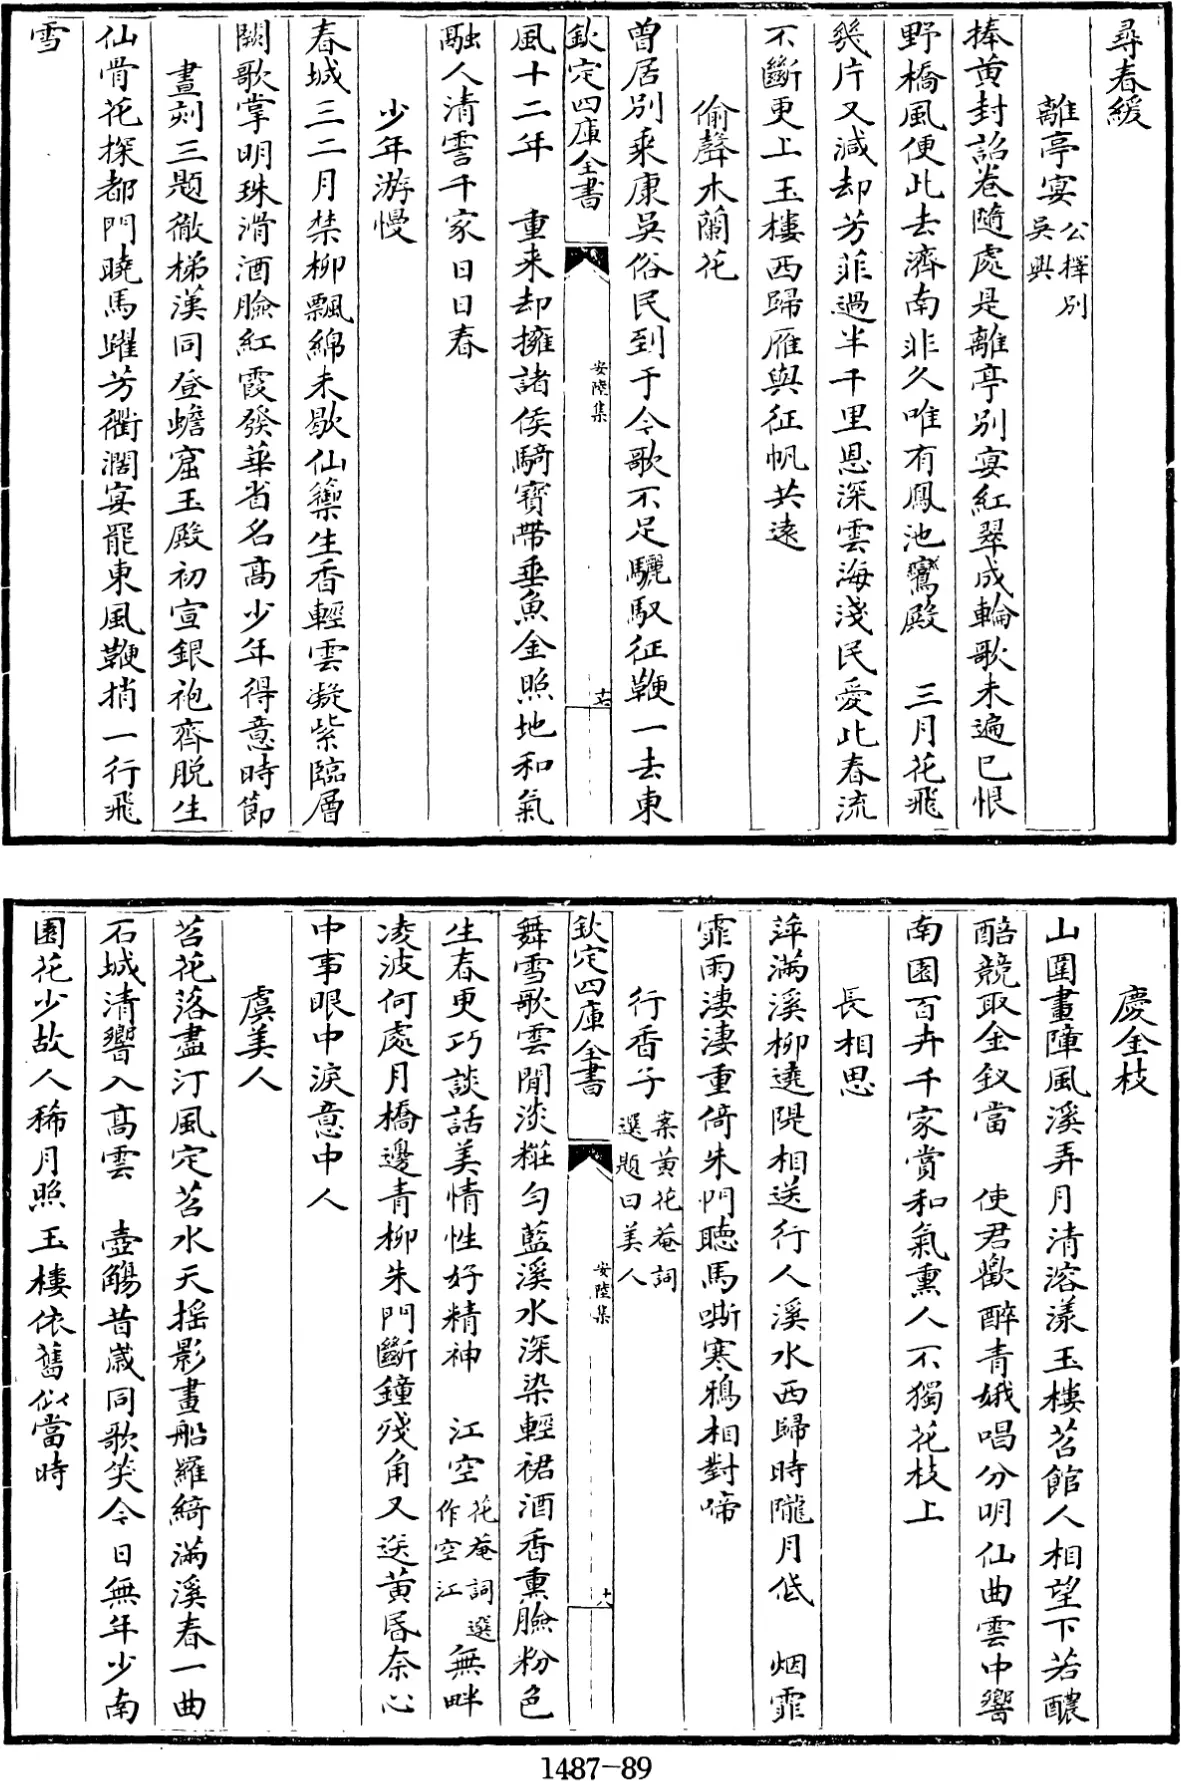 尋春緩
離亭宴公擇別吳興
捧黄封詔卷隨處是離亭別宴紅翠成輪歌未遍已恨
野橋風便此去濟南非久唯有鳳池鸞殿　三月花飛
幾片又減却芳菲過半千里恩深雲海淺民愛此春流
不斷更上玉樓西歸雁與征帆共遠
偷聲木蘭花
曽居別乘康吳俗民到于今歌不足驪馭征鞭一去東
欽定四庫全書
安陸集
十七
風十二年　重来却擁諸侯騎寳帶垂魚金照地和氣
融人清霅千家日日春
少年游慢
春城三二月禁柳飄綿未歇仙籞生香輕雲凝紫臨層
闕歌掌明珠滑酒臉紅霞發華省名髙少年得意時節
畫刻三題徹梯漢同登蟾窟玉殿初宣銀袍齊脱生
仙骨花探都門曉馬躍芳衢濶宴罷東風鞭梢一行飛
雪
慶金枝
山圍畫障風溪弄月清溶漾玉樓苕館人相望下若醲
醅競取金釵當　使君歡醉青娥唱分明仙曲雲中響
南園百卉千家賞和氣熏人不獨花枝上
長相思
萍滿溪柳遶隄相送行人溪水西歸時隴月低　烟霏
霏雨淒淒重倚朱門聽馬嘶寒鴉相對啼
行香子案黄花菴詞選題曰美人
欽定四庫全書
安陸集
十八
舞雪歌雲閒淡粧匀藍溪水深染輕裙酒香熏臉粉色
生春更巧談話美情性好精神　江空花菴詞選作空江無畔
凌波何處月橋邊青柳朱門斷鐘殘角又送黄昏奈心
中事眼中淚意中人
虞美人
苕花落盡汀風定苕水天揺影畫船羅綺滿溪春一曲
石城清響入髙雲　壺觴昔嵗同歌笑今日無年少南
園花少故人稀月照玉樓依舊似當時
1487-89